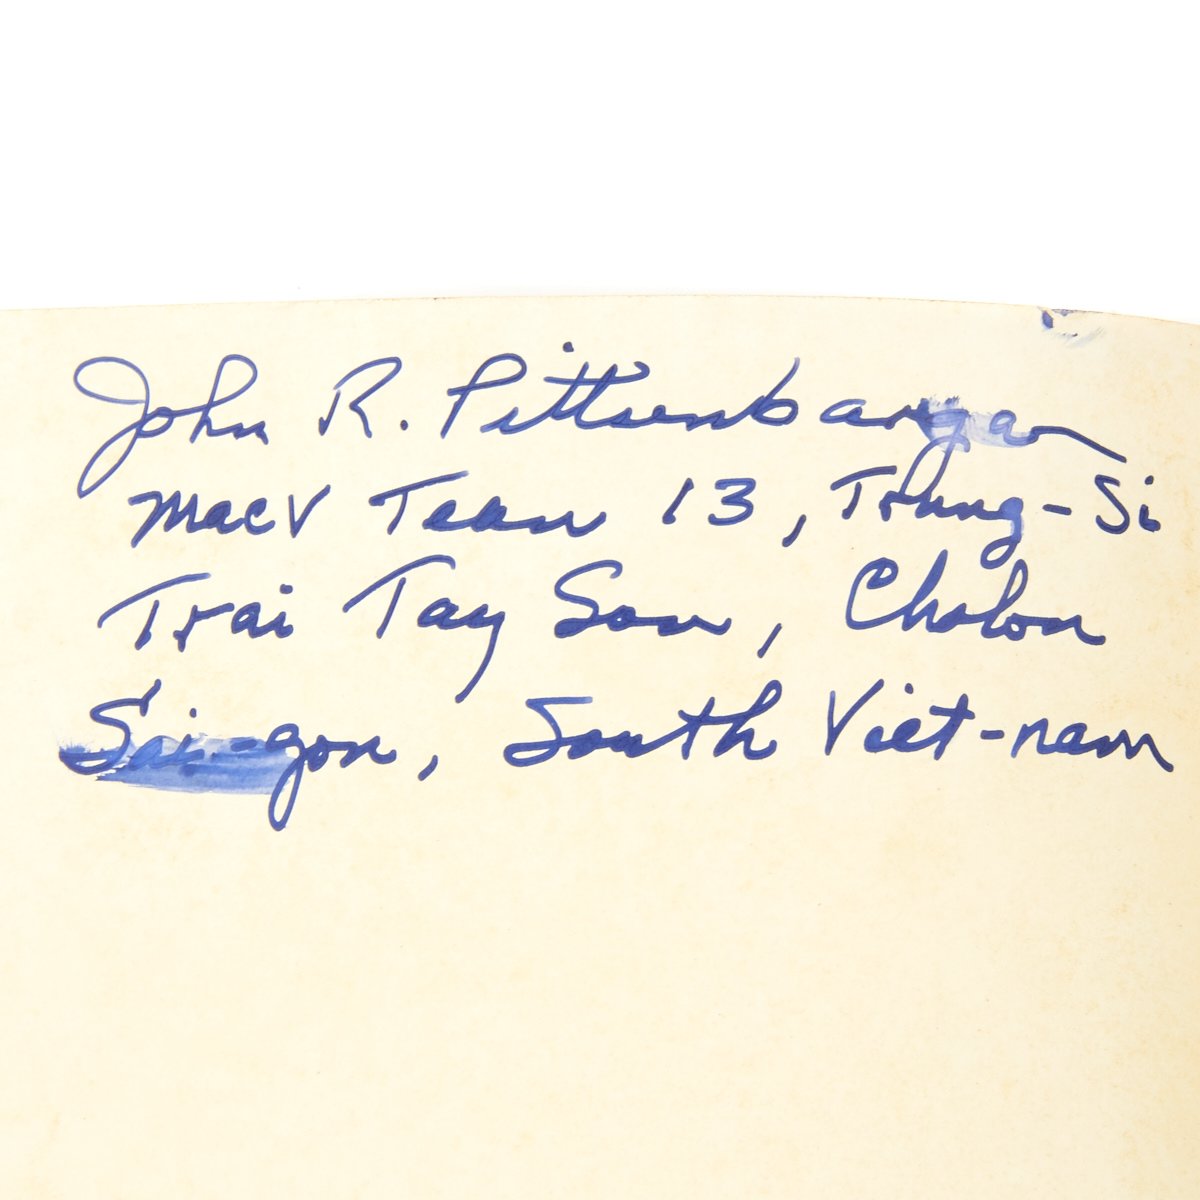 John R. Pittsenbargar
MACV Team 13, Trung-Si
Trai Tay Son, Cholon
Sai-gon, South Viet-nam